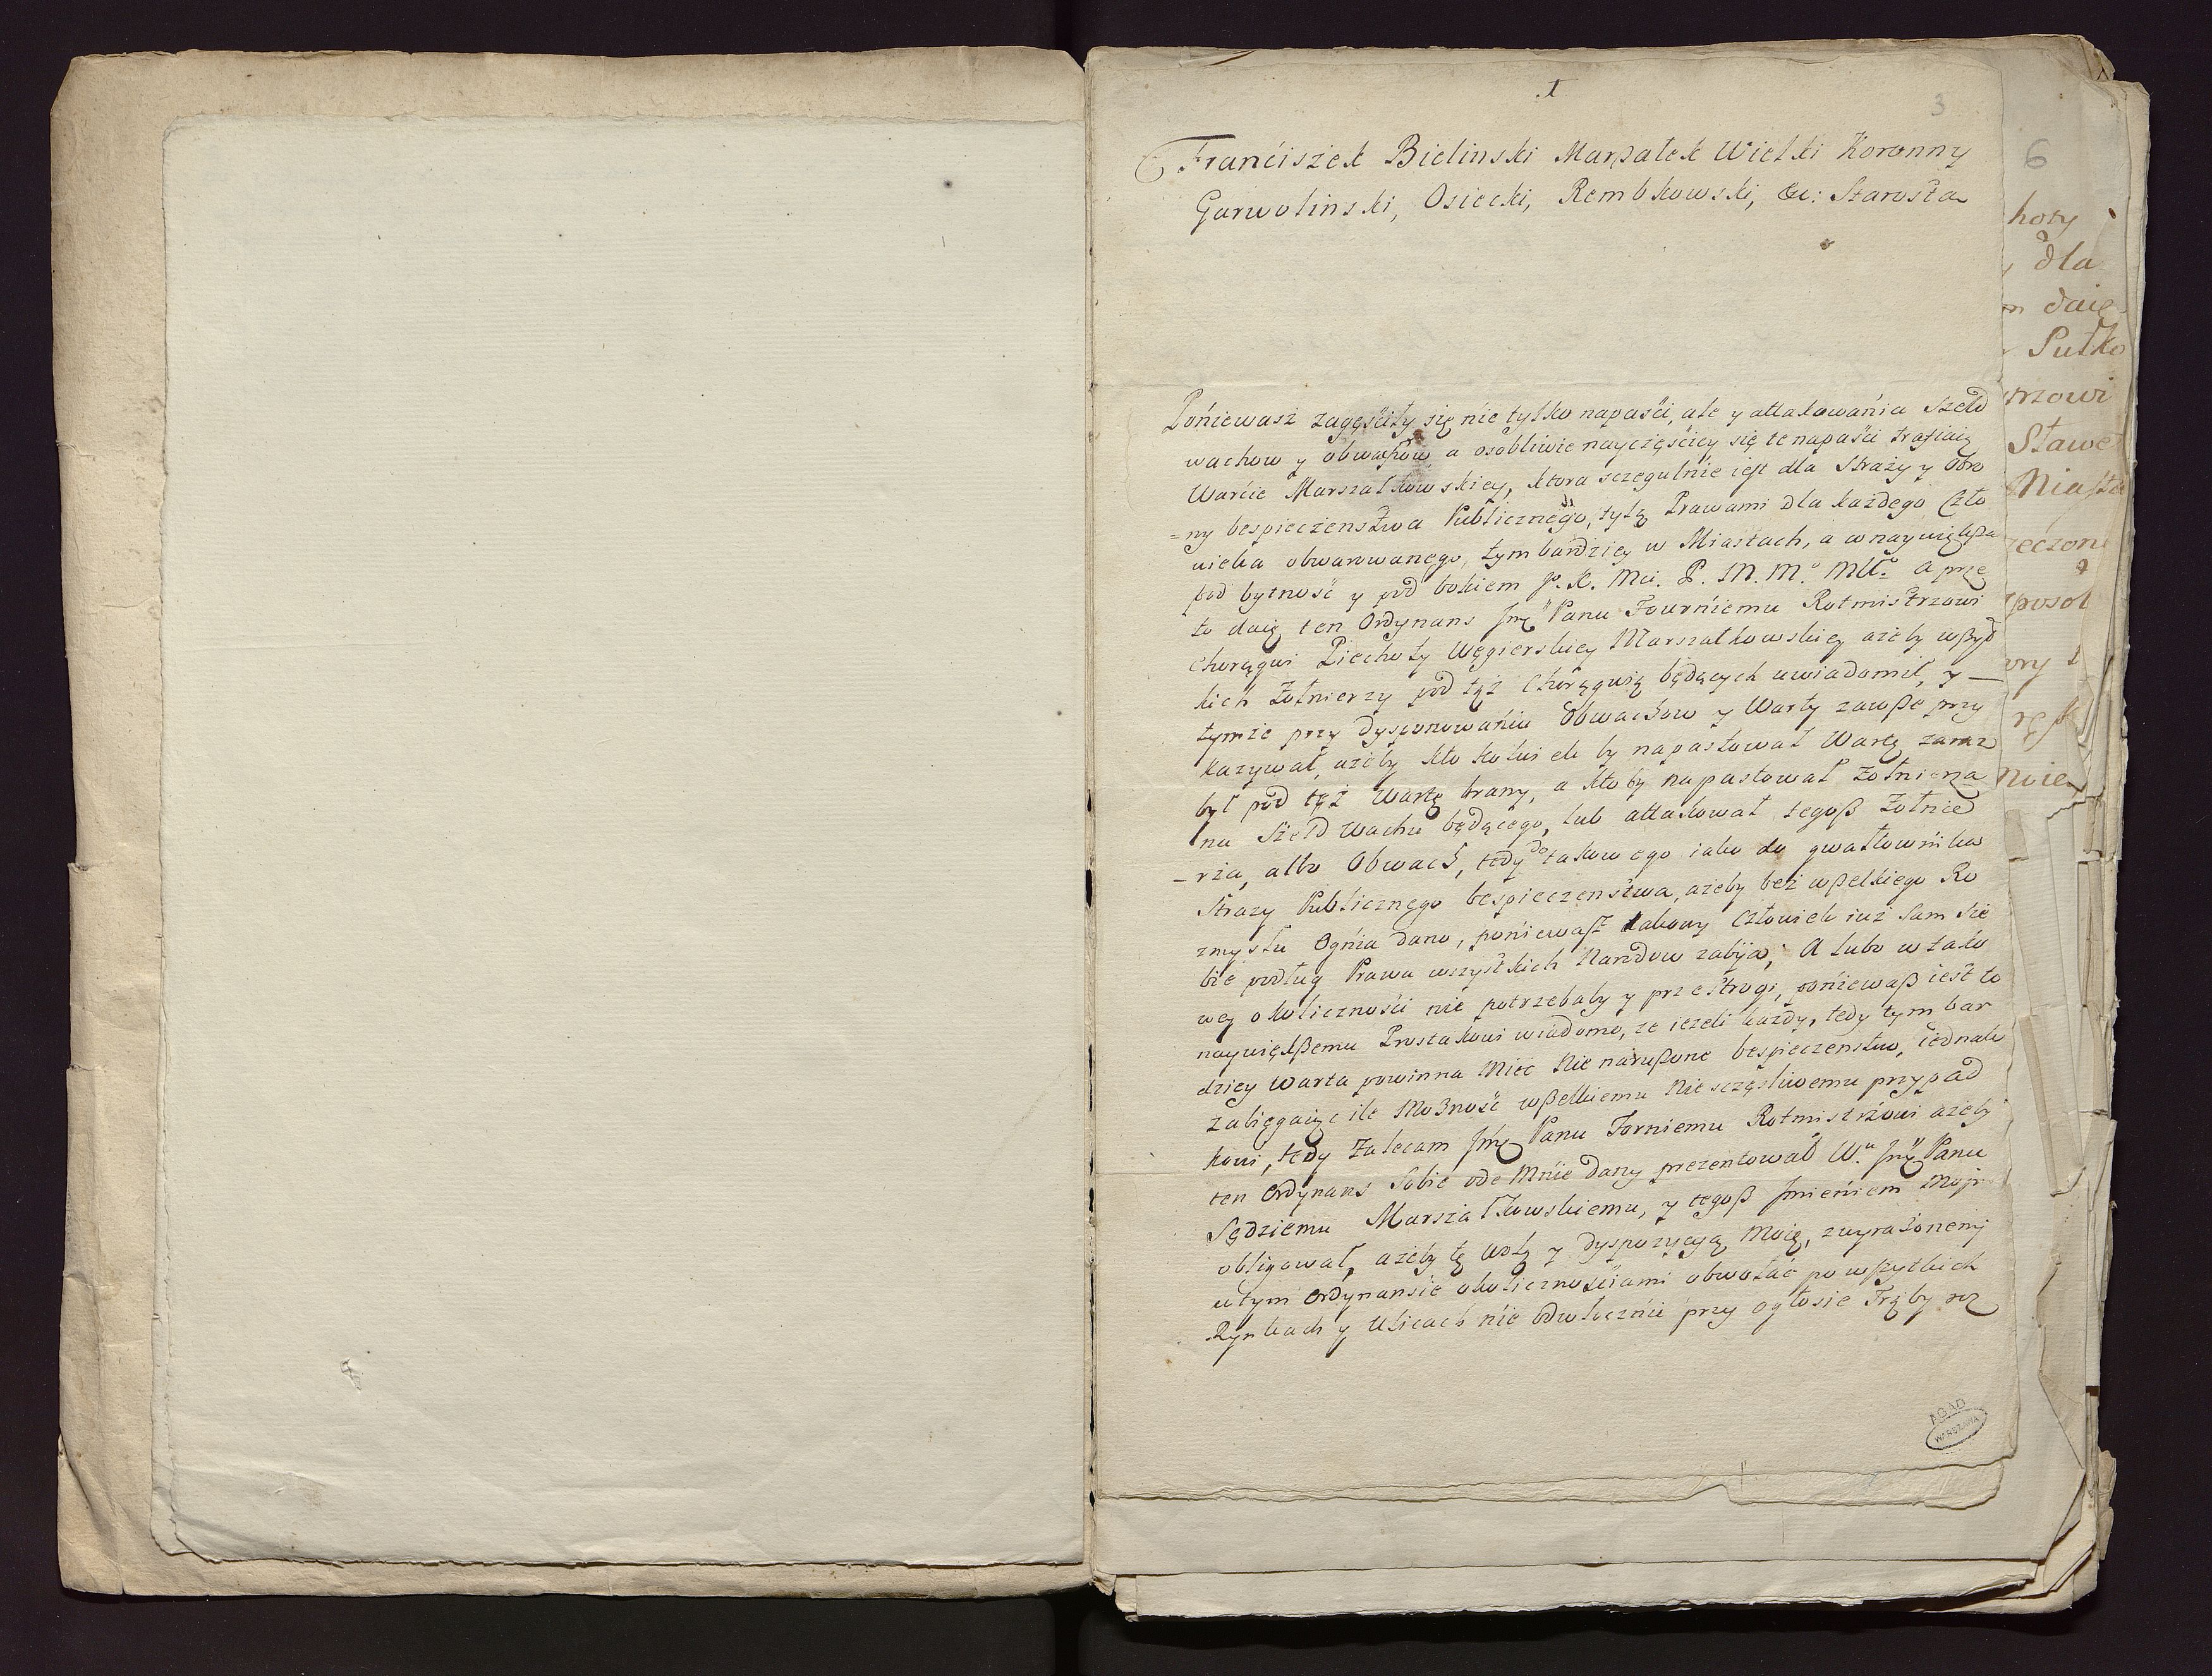 .1
3
Franciszek Bielinski Marszałek Wielki Koronny
Garwolinski, Osiecki, Rembkowski, &c: Starosta
Poniewasz zagęściły się nie tylko napaści, ale y attakowania Szeld
wachow y obwachow, a osobliwie nayczęściey się te napaści trafiaią
Warcie Marszałkowskiey, ktora sczegulnie iest dla Straży y Obro
=ny bespieczenstwa Publicznego, tylą Prawami dla każdego Czło
wieka obwarowanego, tym bardziey w Miastach, a w naywiększą
pod bytność y pod bokiem J. K. Mci. P. M. M.º Młº. A prze
to daię ten Ordynans Jmę Panu Fourniemu Rotmistrzowi
Chorągwi Piechoty Węgierskiey Marszałkowskiey ażeby wszyst
kich Żołnierzy pod tęż Chorągwią będących uwiadomił, y —
tymże przy dysponowaniu Obwachow y Warty zawsze przy
kazywał, ażeby kto kolwiek by napastował Wartę zaraz
był pod tęż Wartę brany, a ktoby napastował Żołnierza
na Szeld wachu będącego, lub attakował tegosz Żołnie
-rza, albo Obwach, tedy do takowego iako do gwałtownika
Straży Publicznego bespieczenstwa, ażeby beż wszelkiego Ro
zmysłu Ognia dano, poniewasz takowy Człowiek iuż sam sie
bie podług Prawa wszystkich Narodow zabija; A lubo w tako
wey okoliczności nie potrzebaby y przestrogi, poniewasz iest to
naywiększemu Prostakowi wiadomo, że ieżeli każdy, tedy tym bar
dziey Warta powinna Mieć Nienaruszone bespieczenstwo, iednak
zabiegaiąc ile Możność wszelkiemu Niesczęśliwemu przypad
kowi, tedy Zalecam Jmę Panu Forniemu Rotmistrzowi ażeby
ten Ordynans Sobie ode Mnie dany prezentował W.u Jmę Panu
Sędziemu Marszałkowskiemu, y tegosz Jmieniem Moim
obligował, ażeby tę wolą y dyspozycyą Moię, z wyrażonemi
w tym Ordynansie okolicznościami obwołać po wszystkich
Rynkach y Ulicach nie odwłocznie przy ogłosie Trąby roz
AGAD
WARSZAWA
6
hoty
dla
daię
Pułko
rzowi
Stawe
Miasta
posob